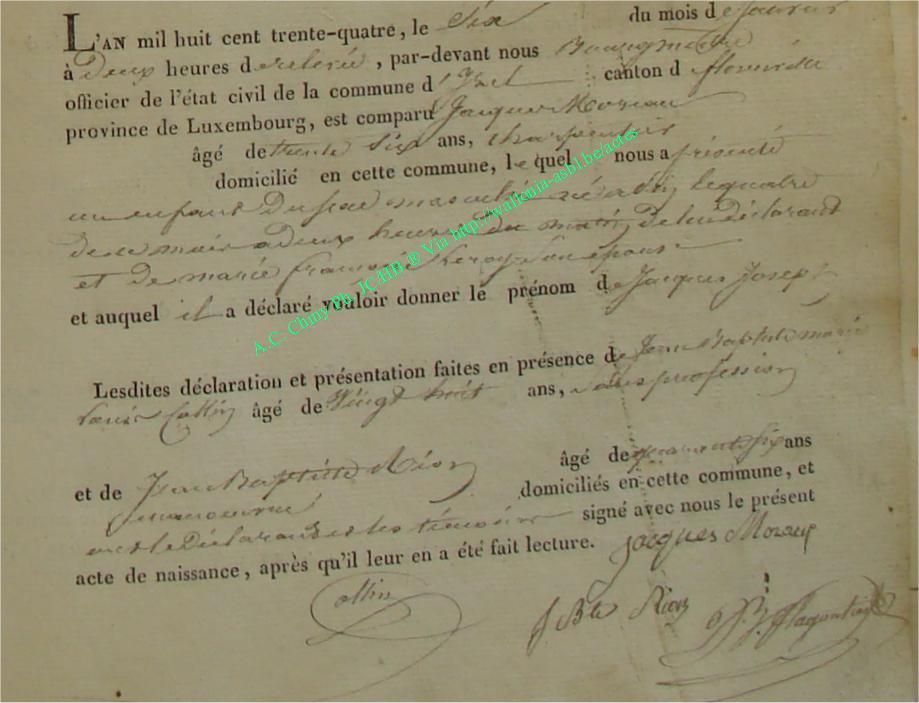 L'AN mil huit cent trente-quatre, le Six du mois de janvier
à Deux heures de relevée, par-devant nous Bourgmestre
officier de l'état civil de la commune d'Izel canton de florenville
province de Luxembourg, est comparu Jacques Moreau
âgé de trente Six ans, charpentier
domicilié en cette commune, lequel nous a présenté
un enfant Du sexe masculin né a Izel le quatre
de ce mois a Deux heures du matin De lui Déclarant
et De marie françoise Leroy Son épouse
et auquel il a déclaré vouloir donner le prénom de Jacques Joseph
Lesdites déclaration et présentation faites en présence de Jean Baptiste marie
Louis Collin âgé de Vingt huit ans, Sans profession
et de Jean Baptiste Rion âgé de quarante six ans
manoeuvre domiciliés en cette commune, et
ont le Déclarant et les témoins signé avec nous le présent
acte de naissance, après qu'il leur en a été fait lecture. Jacques Moreau
Collin J Bte Rion
A.C. Chiny Ph. JC.HB. ® Via http://wallonia-asbl.be/actes